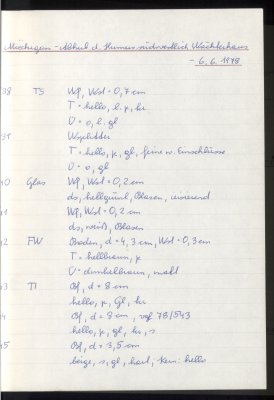 Nischegen - Abhub d. Humus südwestlich Wächterhaus
- 6.6.1978
38 TS Wf, Wst = 0,7 cm
T = hello, l. g, hr
O = o, l. gl
Wsplitter
T = hello, g, gl, feine w. Einschlüsse
O = o, gl
40 Glas Wf, Wst = 0,2 cm
ds, hellgrünl, Blasen, irisierend
41 Wf, Wst = 0,2 cm
ds, weiß, Blasen
42 FW Boden, d = 4,3 cm, Wst = 0,3 cm
T = hellbraun, g
O = dunkelbraun, matt
43 TI Bf, d = 8 cm
hello, g, gl, hr
4 Bf, d = 8 cm, vgl 78/543
hello, g, gl, hr, s
45 Bf, d = 3,5 cm
beige, s, gl, hart, Kern: hello